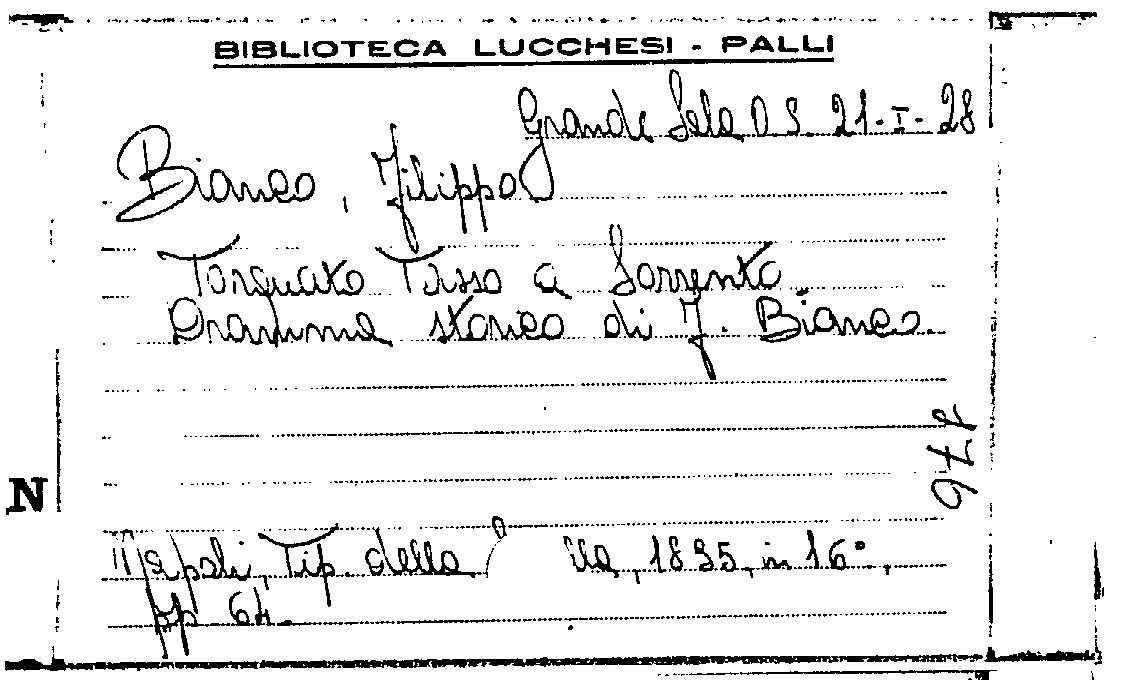 BIBLIOTECA LUCCHESI - PALLI
Grande Sala D S. 21-I-28
Bianco, Filippo
Torquato Tasso a Sorrento
Dramma storico di F. Bianco.
Napoli, Tip. della 1895, in 16°,
pp 64.
N